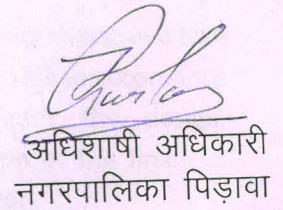 अधिशाषी अधिकारी
नगरपालिका पिड़ावा